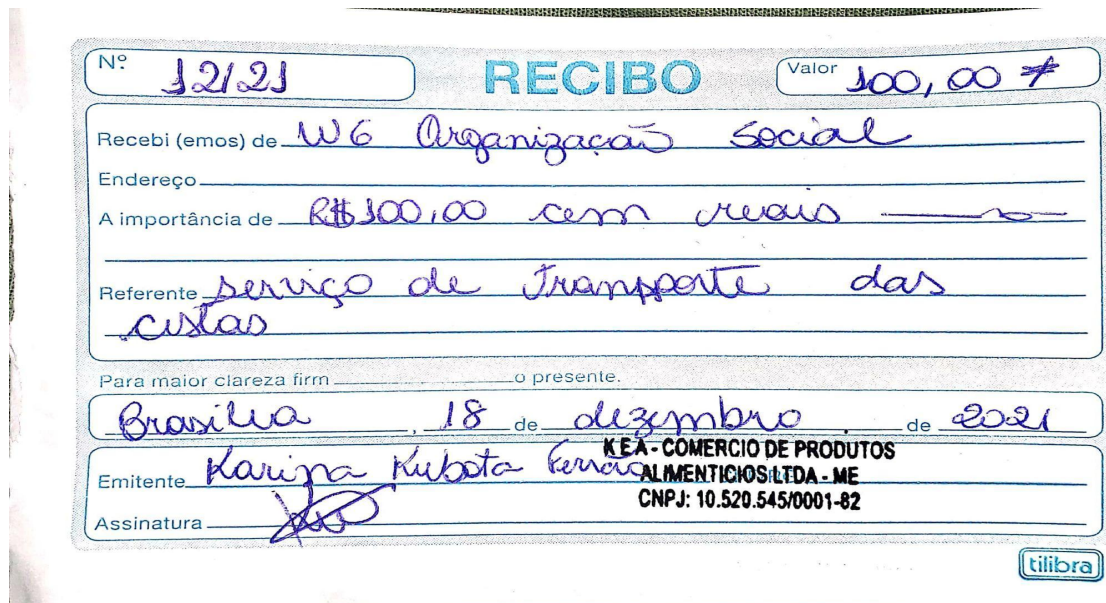 Nº 12/21 RECIBO Valor 100,00 #
Recebi (emos) de W6 Organização Social
Endereço
A importância de R$ 100,00 cem reais
Referente serviço de Transporte das
cistas
Para maior clareza firm o presente.
Brasilia, 18 de dezembro de 2021
KEA - COMERCIO DE PRODUTOS
Emitente Karina Kubota Ferrão ALIMENTICIOS LTDA - ME
CNPJ: 10.520.545/0001-82
Assinatura
tilibra